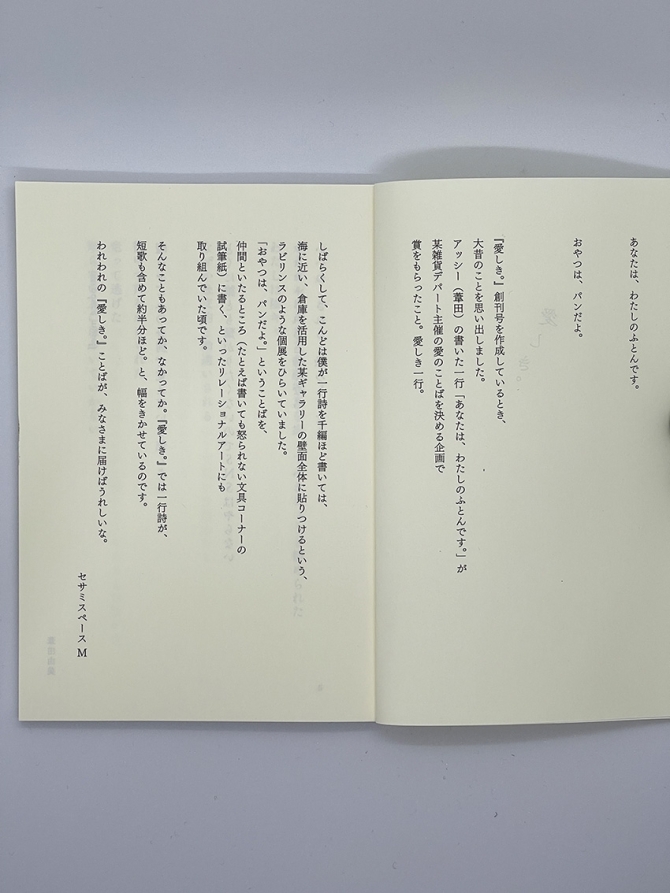 あなたは、わたしのふとんです。
おやつは、パンだよ。
『愛しき。』創刊号を作成しているとき、
大昔のことを思い出しました。
アッシー（葦田）の書いた一行「あなたは、わたしのふとんです。」が
某雑貨デパート主催の愛のことばを決める企画で
賞をもらったこと。愛しき一行。
しばらくして、こんどは僕が一行詩を千編ほど書いては、
海に近い、倉庫を活用した某ギャラリーの壁面全体に貼りつけるという、
ラビリンスのような個展をひらいていました。
「おやつは、パンだよ。」ということばを、
仲間といたるところ（たとえば書いても怒られない文具コーナーの
試筆紙）に書く、といったリレーショナルアートにも
取り組んでいた頃です。
そんなこともあってか、なかってか。『愛しき。』では一行詩が、
短歌も含めて約半分ほど。と、幅をきかせているのです。
われわれの『愛しき。』ことばが、みなさまに届けばうれしいな。
セサミスペース M